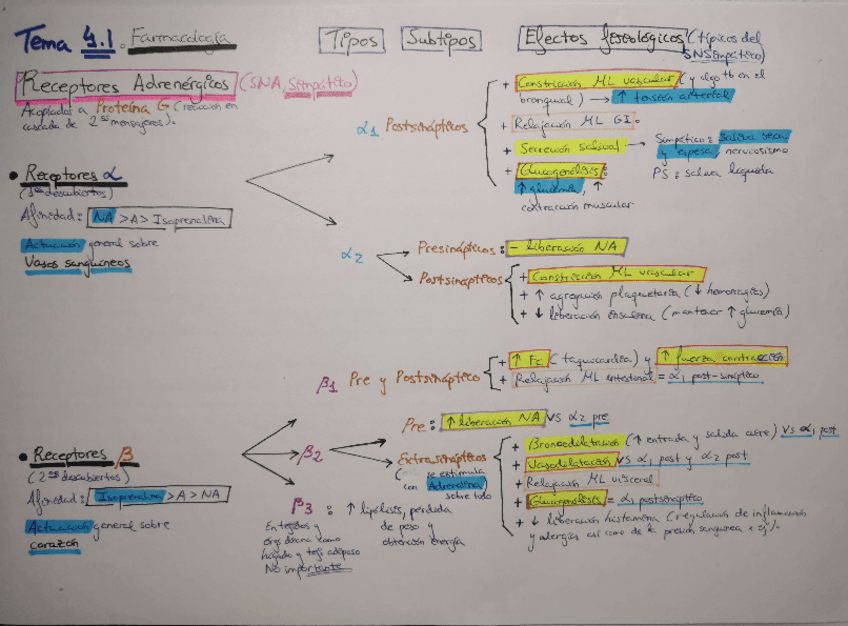 Tema 4.1. Farmacología
Tipos
Subtipos
Efectos fisiológicos (típicos del
SNSimpático)
Receptores Adrenérgicos (SNA, Simpático)
Acoplados a Proteína G (reacción en
cascada de 2os mensajeros).
α1 Postsinápticos
+ Constricción ML vascular (y algo tb en el
bronquial) → ↑ tensión arterial
+ Relajación ML GI.
+ Secreción salival → Simpático: saliva seca
y espesa, nerviosismo
PS: saliva líquida
+ Glucogenólisis:
↑ glucemia, ↑
contracción muscular
• Receptores α
(1os descubiertos)
Afinidad: NA > A > Isoprenalina
Actuación general sobre
Vasos sanguíneos
α2
Presinápticos: - liberación NA
Postsinápticos
+ Constricción ML vascular
+ ↑ agregación plaquetaria (↓ hemorragias)
+ ↓ liberación insulina (mantener ↑ glucemia)
β1 Pre y Postsináptico
+ ↑ Fc (taquicardia) y ↑ fuerza contracción
+ Relajación ML intestinal = α1 post-sináptico
• Receptores β
(2os descubiertos)
Afinidad: Isoprenalina > A > NA
Actuación general sobre
corazón
β2
Pre: ↑ liberación NA VS α2 pre
Extrasinápticos
(se estimula
con Adrenalina
sobre todo
+ Broncodilatación (↑ entrada y salida aire) VS α1 post
+ Vasodilatación VS α1 post y α2 post
+ Relajación ML visceral
+ Glucogenólisis = α1 postsináptico
+ ↓ liberación histamina (regulación de inflamación
y alergias así como de la presión sanguínea x ej).
β3 : ↑ lipólisis, pérdida
de peso y
obtención energía
En tejidos y
órg diana como
hígado y tejj adiposo
No importante